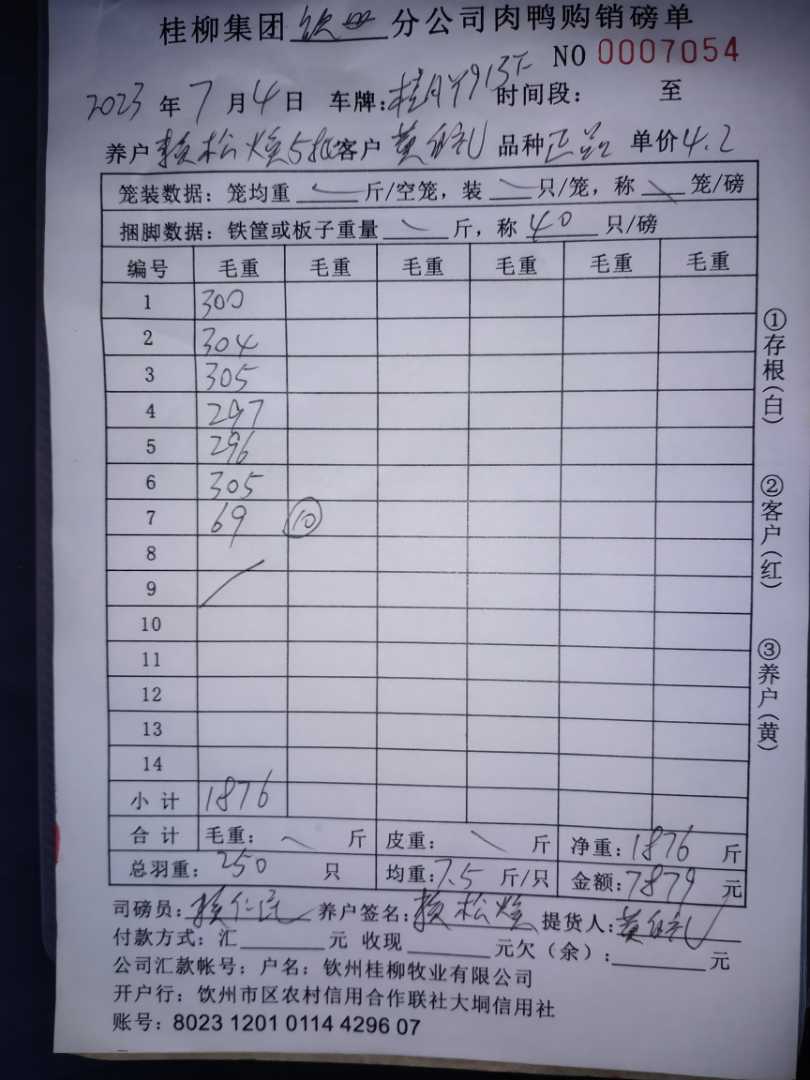 桂柳集团 钦州 分公司肉鸭购销磅单
NO 0007054
2023 年 7 月 4 日 车牌: 时间段: 至
养户 赖松焕5批 客户 黄 礼 品种 正品 单价 4.2
笼装数据: 笼均重 斤/空笼, 装 只/笼, 称 笼/磅
捆脚数据: 铁筐或板子重量 斤, 称 40 只/磅
编号 毛重 毛重 毛重 毛重 毛重 毛重
1 300
2 304
3 305
4 297
5 296
6 305
7 69 10
8
9
10
11
12
13
14
小计 1876
合计 毛重: 斤 皮重: 斤 净重: 1876 斤
总羽重: 250 只 均重: 7.5 斤/只 金额: 7879 元
司磅员: 赖仁 养户签名: 赖松焕 提货人: 黄 礼
付款方式: 汇 元 收现 元欠(余): 元
公司汇款帐号: 户名: 钦州桂柳牧业有限公司
开户行: 钦州市区农村信用合作联社大垌信用社
账号: 8023 1201 0114 4296 07
①存根(白)
②客户(红)
③养户(黄)